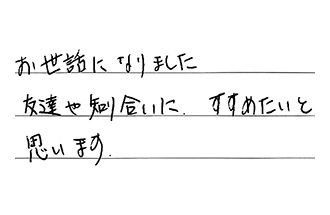 お世話になりました
友達や知り合いに．すすめたいと
思います．